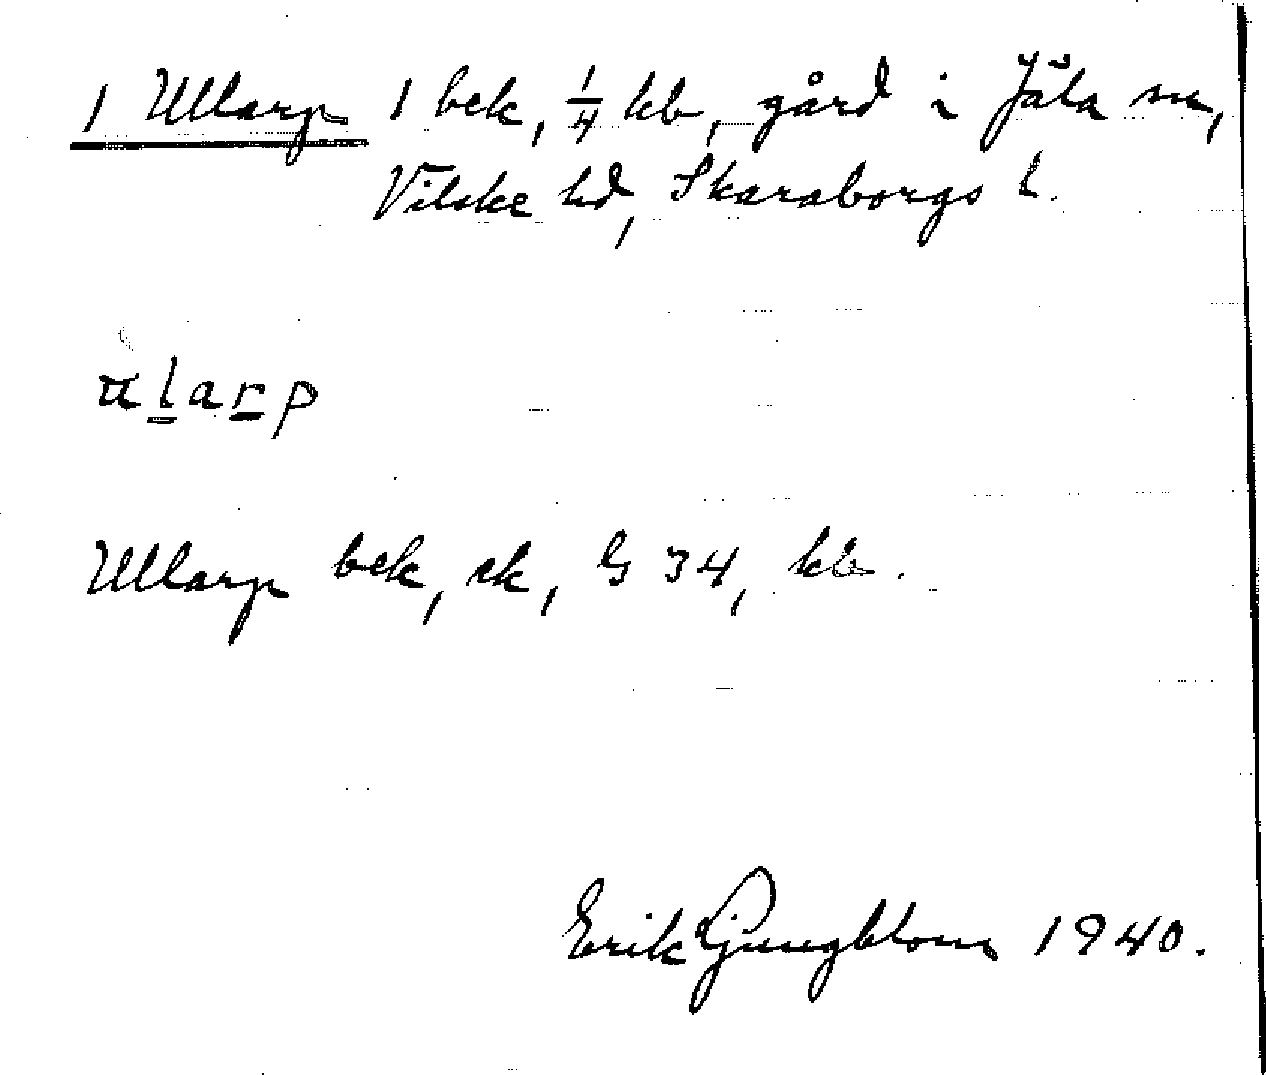 1 Ullarp 1 bek, 1/4 kb, gård i Jäla sn,
Vilske hd, Skaraborgs l.
ularp
Ullarp bek, ek, G 34, kb.
Erik Ljungblom 1940.